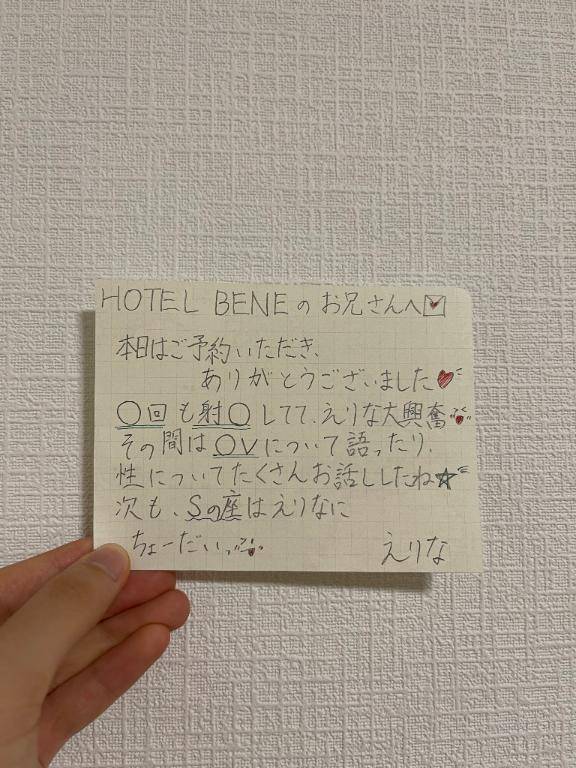 HOTEL BENEのお兄さんへ
本日はご予約いただき、
ありがとうございました
○回も射○してて、えりな大興奮
その間は○Vについて語ったり、
性についてたくさんお話ししたね
次も、Sの座はえりなに
ちょーだいっ
えりな